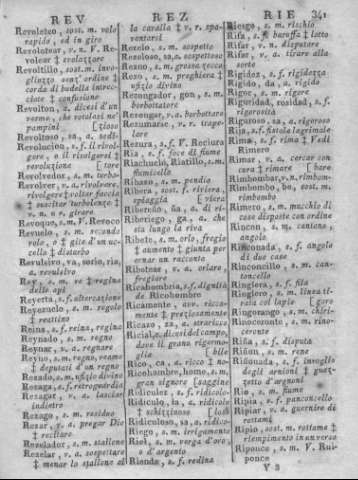 REV REZ RIE 341
Revoleteo, sost. m. volo
rapido, ed in giro
Revolotear, v. n. V. Re-
volear ‡ svolazzare
Revoltillo, sost. m. invo-
gliuzzo senz' ordine ‡
corda di budella intrec-
ciate ‡ confusione
Revolton, s. dicesi d'un
verme, che rotolasi ne'
pampini [zioso
Revoltoso, sa, a. sedi-
Revolucion, s. f. il rivol-
gere, o il rivolgersi ‡
rivoluzione
Revolvedor, s. m. turba-
Revolver, v. a. rivolvere,
rivolgere ‡ voltar faccia
‡ suscitar turbolenze ‡
v. a. e n. girare
Revoque, s. m. V. Revoco
Revuelo, s. m. secondo
volo, o ‡ gito d'un uc-
cello ‡ disturbo
Rey, s. m. re ‡ regina
delle api
Reyerta, s. f. altercazione
Reyezuelo, s. m. regolo
‡ reattino
Reina, s. f. reina, regina
Reynado, s. m. regno
Reynar, v. n. regnare
Reyno, s. m. regno, reame
‡ deputati d'un regno
Rezado, s. m. uffizio divino
Rezaga, s. f. retroguardia
Rezagar, v. a. lasciar
indietro
Rezago, s. m. residuo
Rezar, v. a. pregar Dio
‡ recitare
Rezelador, s. m. stallone
Rezelar, v. a. sospettare
‡ menar lo stallone al
la cavalla ‡ v. r. spa-
ventarsi
Rezelo, s. m. sospetto
Rezeloso, sa, a. sospettoso
Rezno, s. m. grossa zecca
Rezo, s. m. preghiera ‡
ufizio divino
Rezongador, gon, s. m.
borbottatore
Rezongar, v. a. borbottare
Rezumarse, v. r. trape-
lare
Rezura, s. f. V. Reciura
Ria, s. f. foce di fiume
Riachuelo, Riatillo, s. m.
fiumicello
Ribazo, s. m. pendio
Ribera, sost. f. riviera,
spiaggia [viera
Ribereño, ña, a. di ri-
Riberiego, ga, a. che
sta lungo la riva
Ribete, s. m. orlo, fregio
‡ aumento ‡ giunta per
ornar un racconto
Ribetear, v. a. orlare,
fregiare
Ricahombria, s. f. dignità
de Ricohombre
Ricamente, avv. ricca-
mente ‡ preziosamente
Ricazo, za, a. straricco
Ricial, a. dicesi del campo,
dove il grano rigermo-
glia [bile
Rico, ca, a. ricco ‡ no-
Ricohombre, homo, s. m.
gran signore [saggine
Ridiculez, s. f. ridicolo-
Ridiculo, la, a. ridicolo
‡ schizzinoso [loso
Ridiculoso, sa, a. ridico-
Riego, s. m. irrigamento
Riel, s. m. verga d'oro,
o d'argento
Rienda, s. f. redina
Riesgo, s. m. rischio
Rifa, s. f. baruffa ‡ lotto
Rifar, v. n. disputare
Rifar, v. a. tirare alla
sorte
Rigidez, s. f. rigidità
Rigido, da, a. rigido
Rigor, s. m. rigore
Rigoridad, rosidad, s. f.
rigorosità
Rigoroso, sa, a. rigoroso
Rima, s. f. rima ‡ V. di
Rimero
Rimar, v. a. cercar con
cura ‡ rimare [bare
Rimbombar, v. n. rimbom-
Rimbombo, bo, sost. m.
rimbombo
Rimero, s. m. mucchio di
cose disposte con ordine
Rincon, s. m. cantone,
angolo
Rinconada, s. f. angolo
di due case
Rinconcillo, s. m. can-
toncello
Ringlera, s. f. fila
Ringlero, s. m. linea ti-
rata col lapis [goro
Ringorango, s. m. chiri-
Rinoceronte, s. m. rino-
ceronte
Riña, s. f. disputa
Riñon, s. m. rene
Rio, s. m. fiume
Ripia, s. f. panconcello
Ripiar, v. a. guernire di
rottami
Ripio, sost. m. rottame ‡
riempimento in un verso
Riponce, s. m. V. Rui-
ponce
Y 3